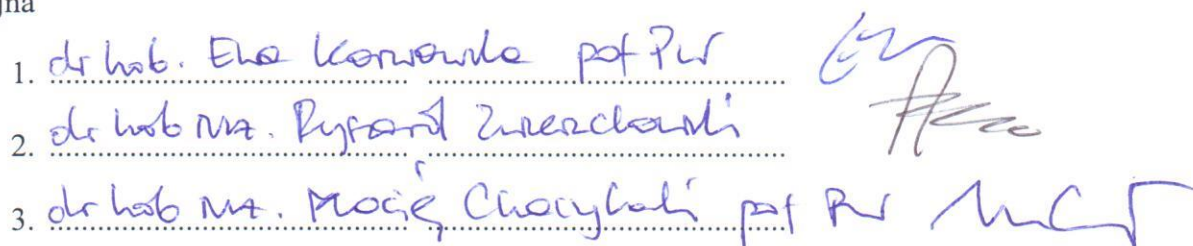 jna
1. dr hab. Ewa Karwowska prof PW
2. dr hab inż. Ryszard Zwierzchowski
3. dr hab inż. Maciej Chaczykowski prof PW